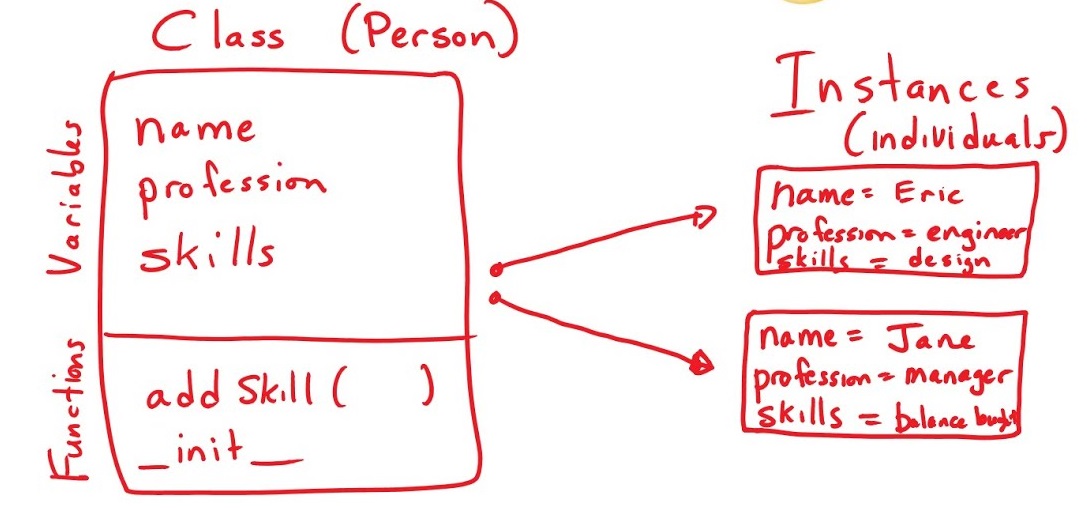 Class (Person)
Variables
name
profession
skills
Functions
add Skill ( )
_init_
Instances
(individuals)
name = Eric
profession = engineer
skills = design
name = Jane
profession = manager
skills = balance